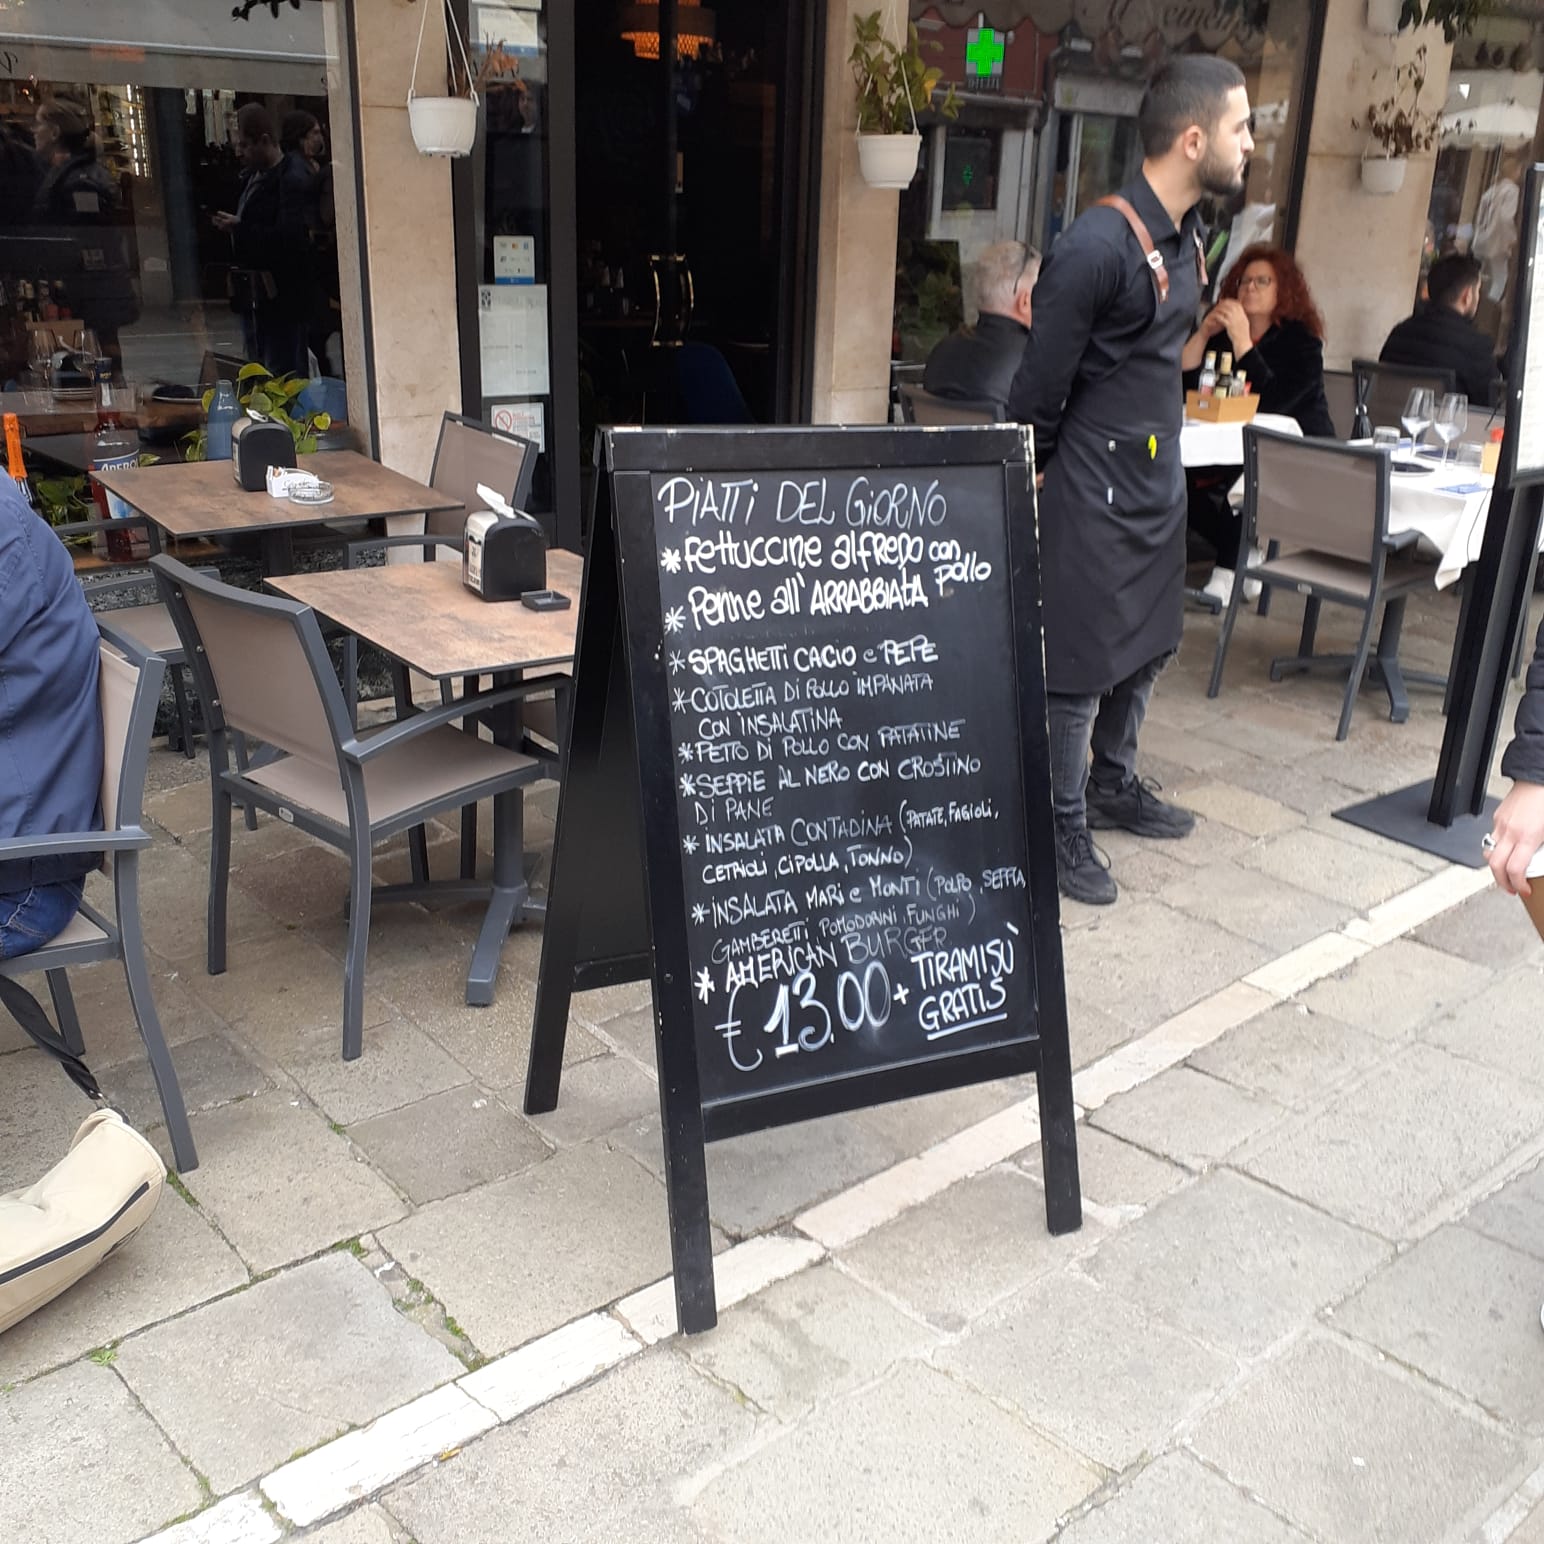 PIATTI DEL GIORNO
* Fettuccine alfredo con pollo
* Penne all'ARRABBIATA
* SPAGHETTI CACIO e PEPE
* COTOLETTA DI POLLO IMPANATA
CON INSALATINA
* PETTO DI POLLO CON PATATINE
* SEPPIE AL NERO CON CROSTINO
DI PANE
* INSALATA CONTADINA (PATATE, FAGIOLI,
CETRIOLI, CIPOLLA, TONNO)
* INSALATA MARI e MONTI (POLPO, SEPPIA,
GAMBERETTI, POMODORINI, FUNGHI)
* AMERICAN BURGER
€ 13.00 + TIRAMISÙ
GRATIS